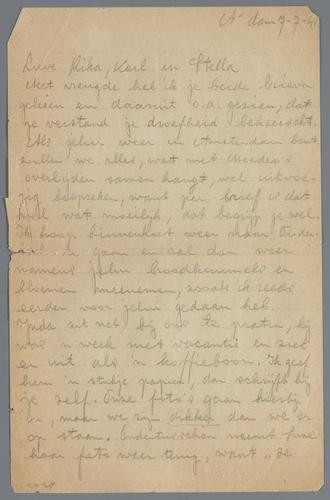 A'dam 7-7-41
Lieve Rika, Karel en Stella
Met vreugde heb ik je beide brieven
gelezen en daaruit o.a. gezien, dat
je verstand je droefheid beheerscht.
Als jelui weer in Amsterdam bent
zullen we alles, wat met Moeder's
overlijden samen hangt, wel uitvoe-
rig bespreken, want per brief is dat
heel wat moeilijk, dat begrijp je wel.
Ik hoop binnenkort weer naar
te gaan en zal dan weer
namens jelui en
bloemen meenemen, zooals ik reeds
eerder voor jelui gedaan heb.
zit net bij ons te praten, hij
was 'n week met vacantie en ziet
er uit als 'n koffieboon. Ik geef
hem 'n stukje papier, dan schrijft hij
je zelf. Onze foto's gaan hierbij
in, maar we zijn dikker dan we er
op staan. Ondertusschen neemt
haar foto weer terug, want "ze